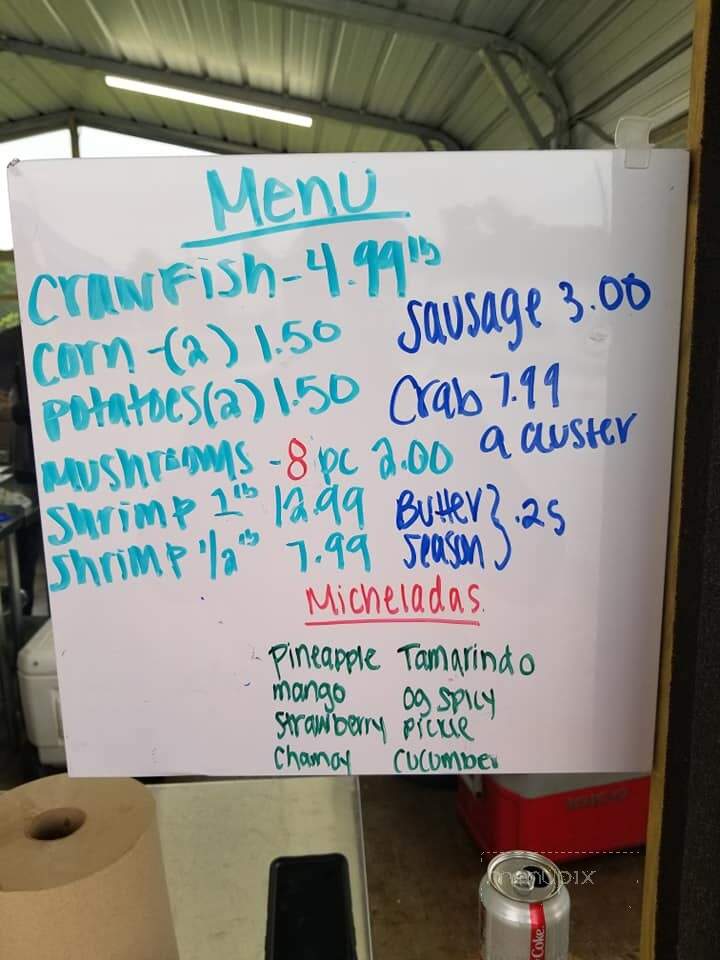 Menu
Crawfish - 4.99 lb
Corn - (2) 1.50
Potatoes (2) 1.50
Mushrooms - 8 pc 2.00
Shrimp 1 lb 12.99
Shrimp 1/2 lb 7.99
Sausage 3.00
Crab 7.99
a cluster
Butter } .25
Season
Micheladas
Pineapple Tamarindo
mango og spicy
Strawberry pickle
Chamoy cucumber
Coke
menupix